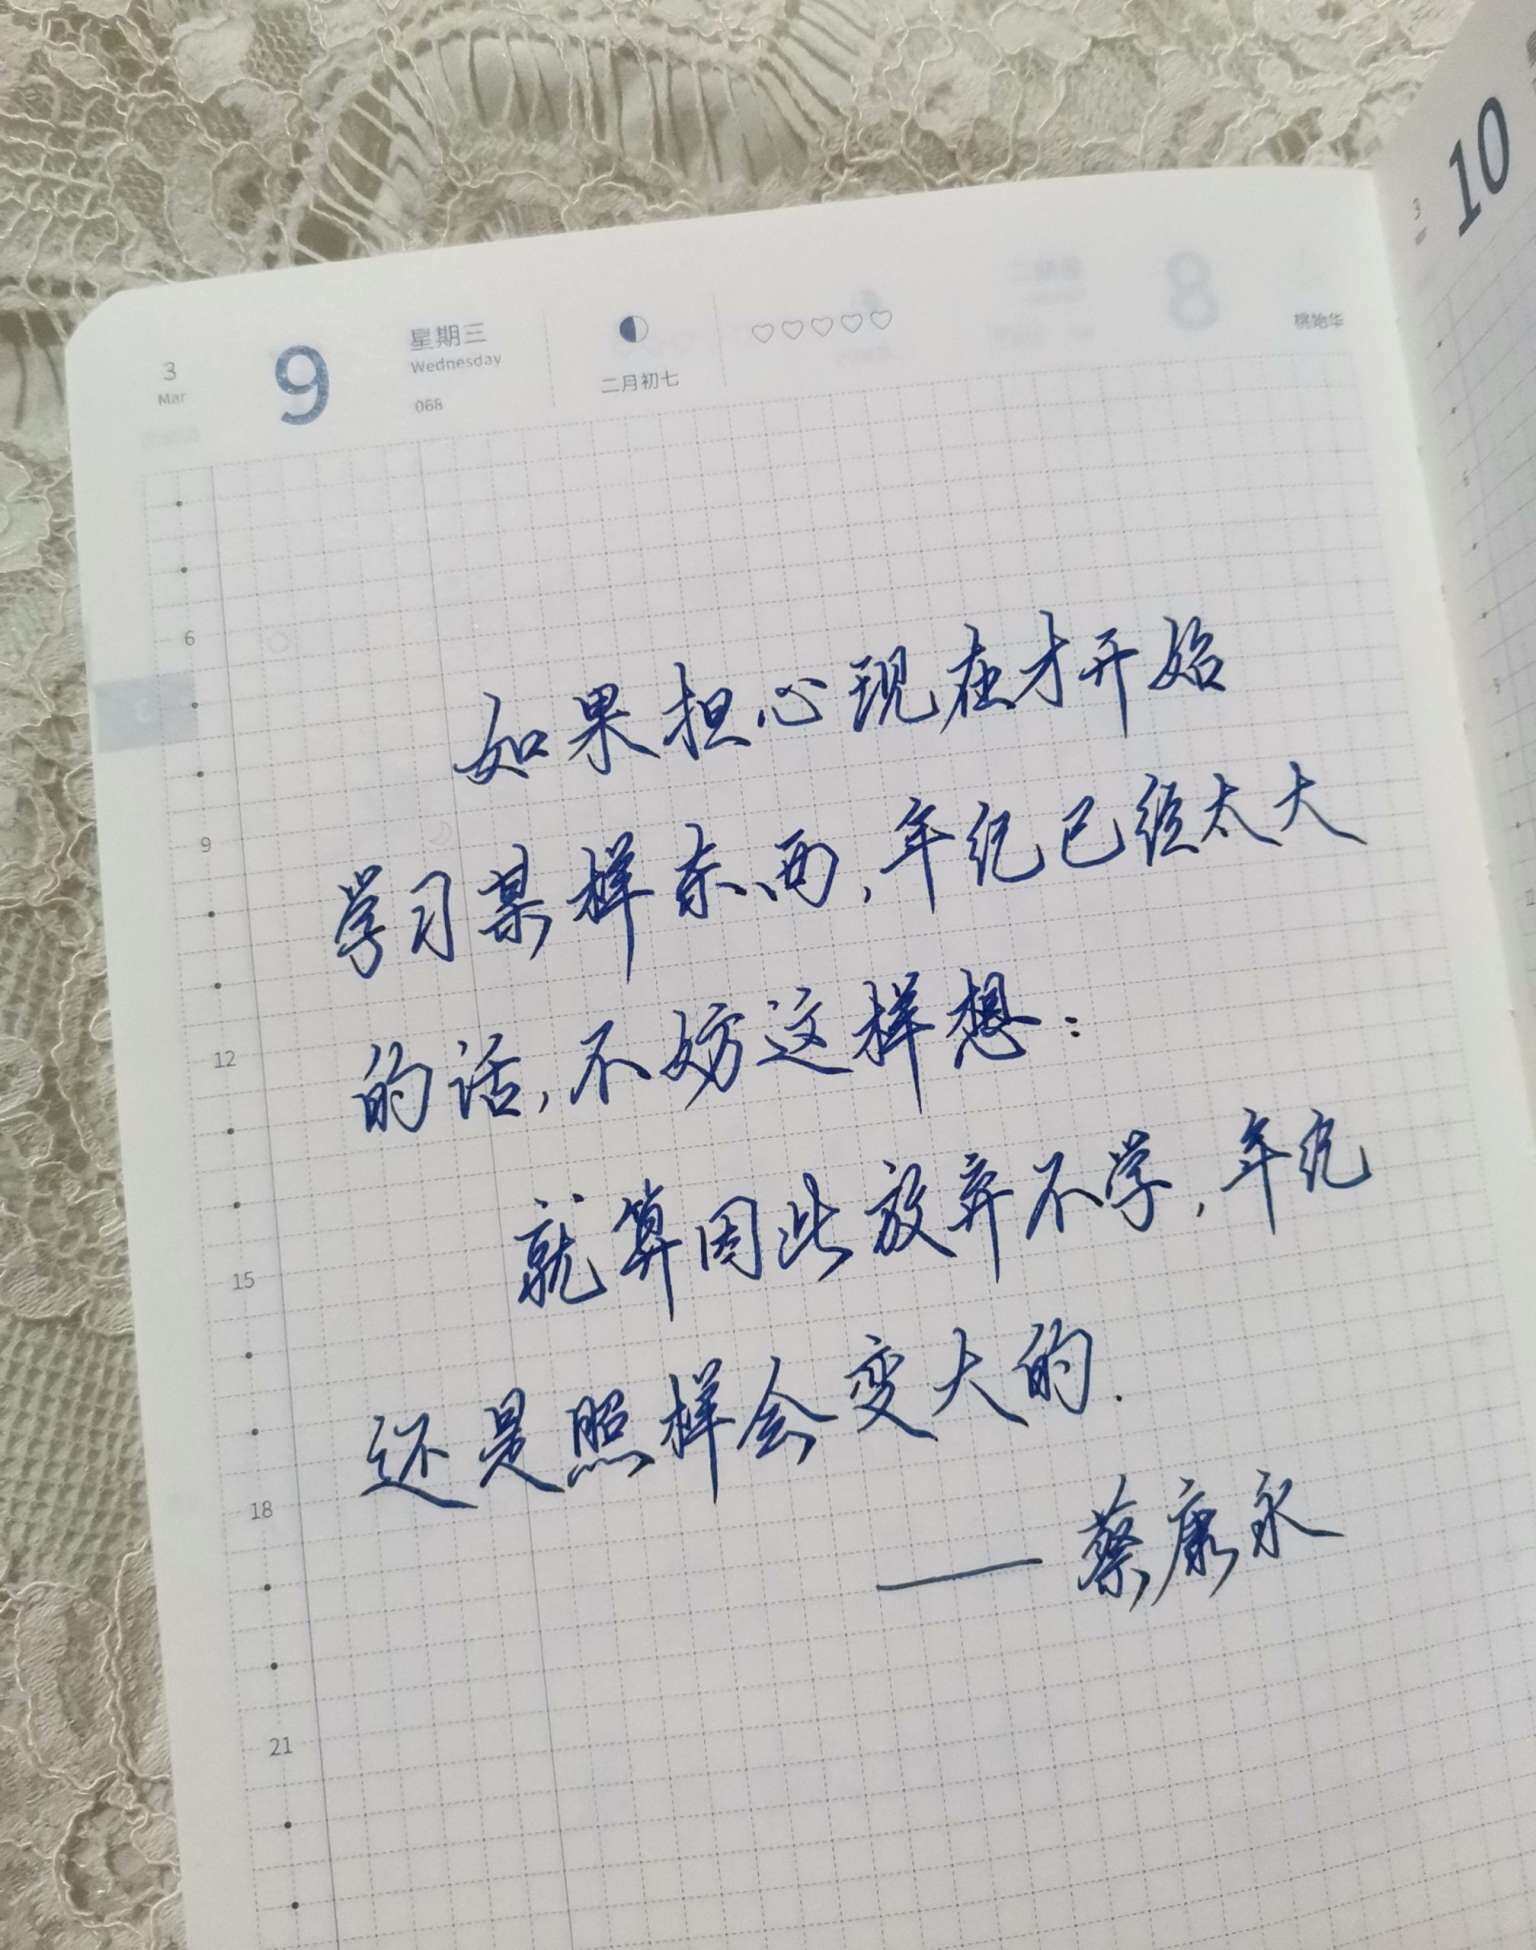 3
Mar
9
星期三
Wednesday
068
二月初七
桃始华
10
3
6
9
12
15
18
21
如果担心现在才开始
学习某样东西,年纪已经太大
的话,不妨这样想:
就算因此放弃不学,年纪
还是照样会变大的.
——蔡康永